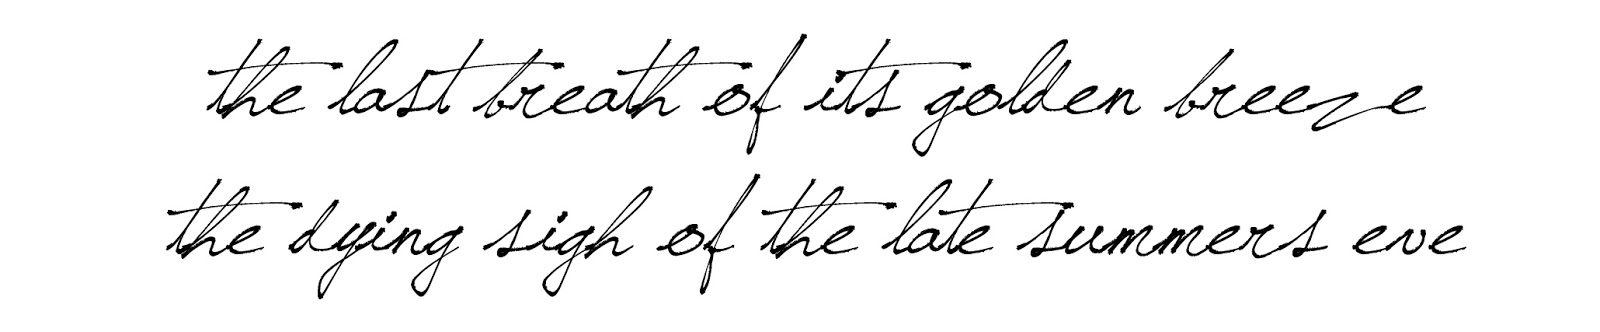 the last breath of its golden breeze
the dying sigh of the late summers eve